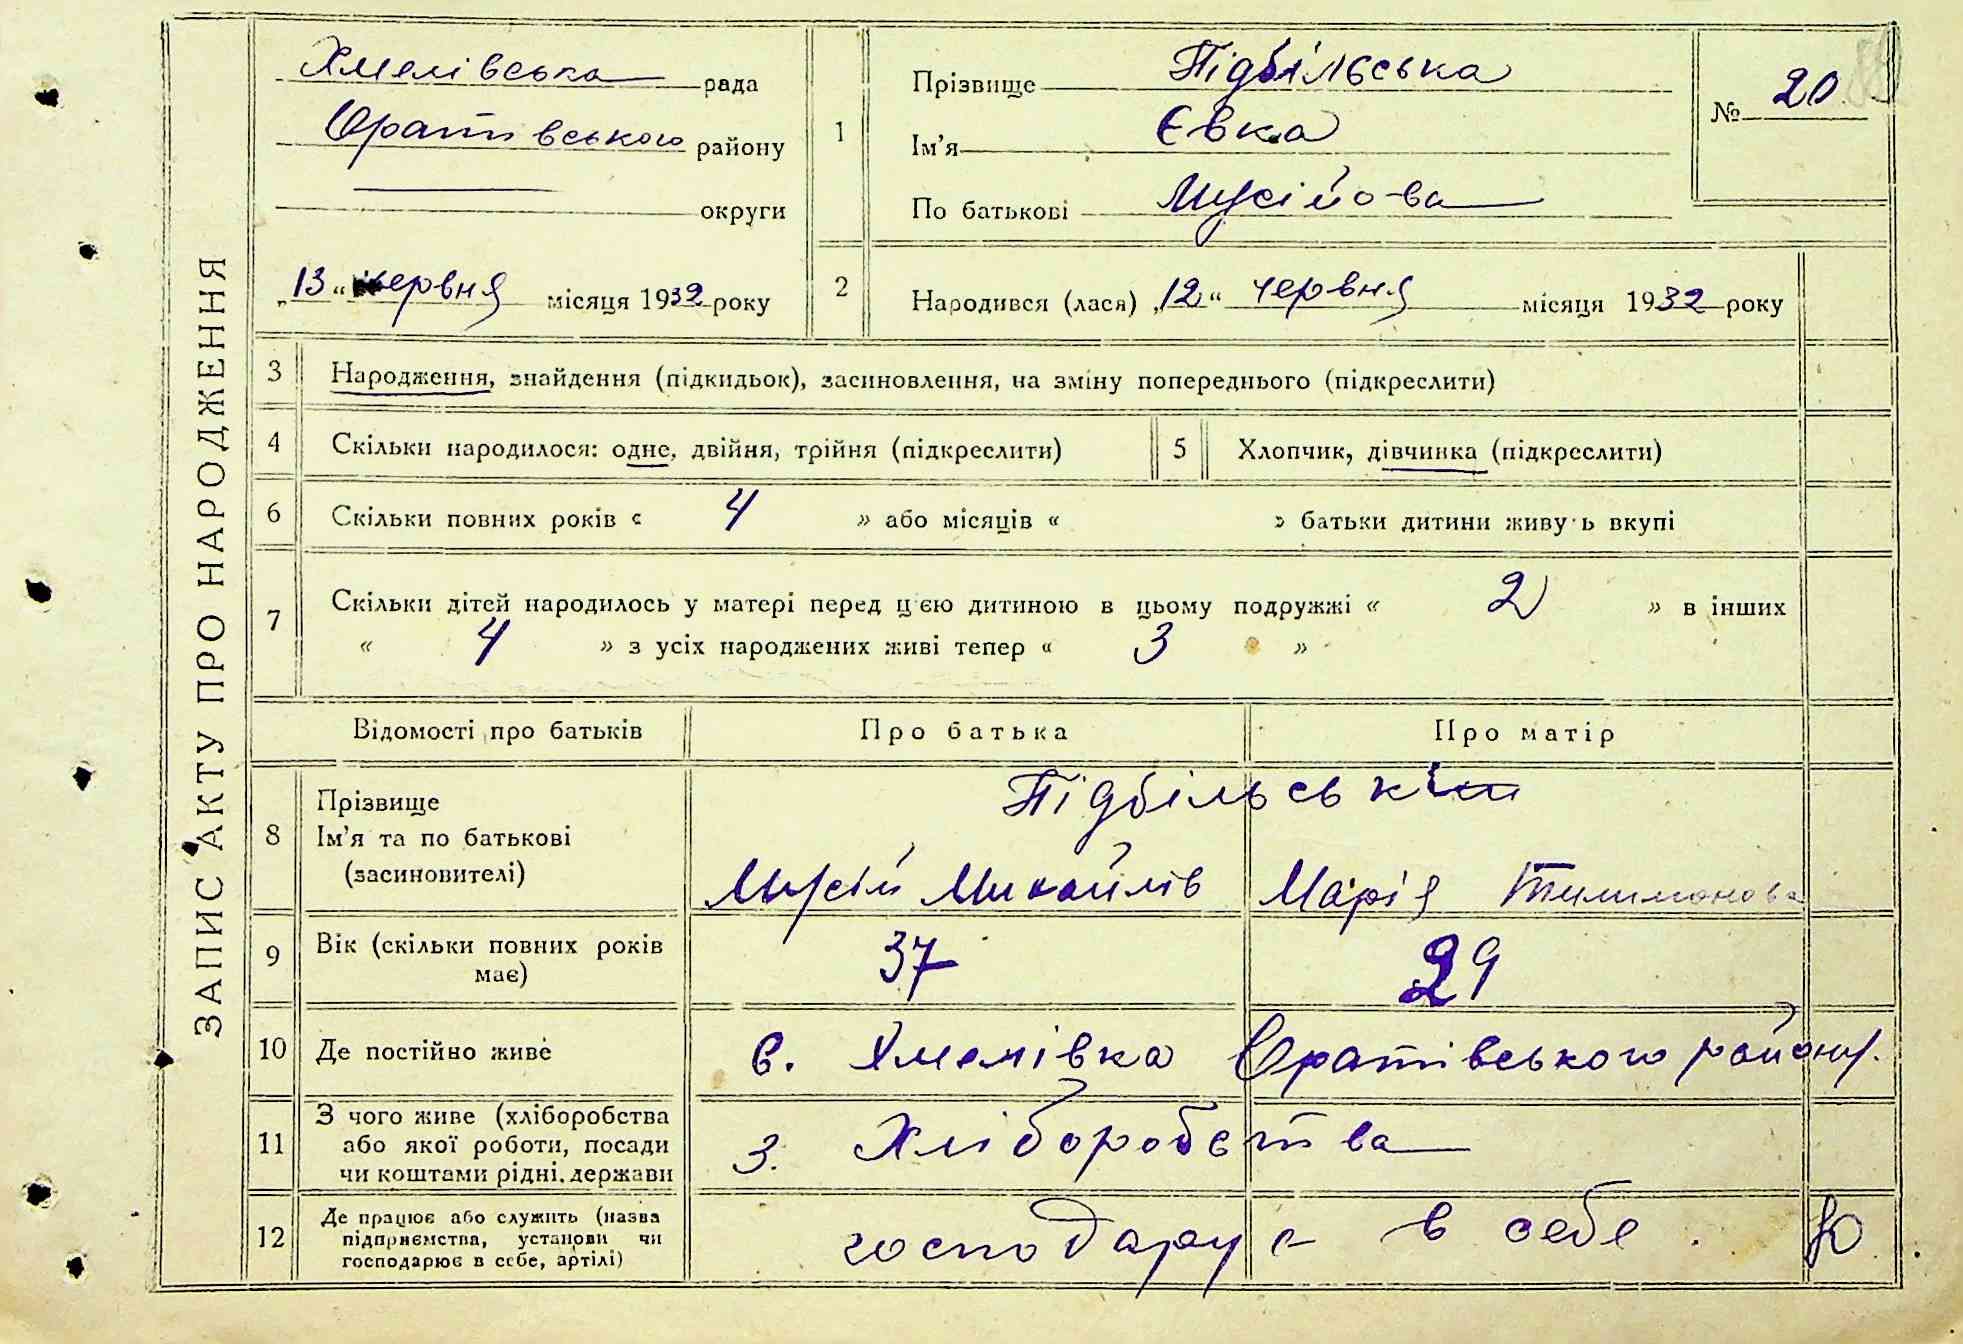 ЗАПИС АКТУ ПРО НАРОДЖЕННЯ
Хмелівська рада
Оратівського району
округи
„13“ червня місяця 1932 року
1
Прізвище Підбільська
Ім'я Євка
По батькові Мусійова
№ 20
2
Народився (лася) „12“ червня місяця 1932 року
3 Народження, знайдення (підкидьок), засиновлення, на зміну попереднього (підкреслити)
4 Скільки народилося: одне, двійня, трійня (підкреслити)
5 Хлопчик, дівчинка (підкреслити)
6 Скільки повних років « 4 » або місяців « » батьки дитини живуть вкупі
7 Скільки дітей народилось у матері перед цією дитиною в цьому подружжі « 2 » в інших
« 4 » з усіх народжених живі тепер « 3 »
Відомості про батьків Про батька Про матір
8 Прізвище
Ім'я та по батькові
(засиновителі)
Підбільські
Мусій Михайлів Марія Тилимонова
9 Вік (скільки повних років
має)
37 29
10 Де постійно живе с. Хмелівка Оратівського району.
11 З чого живе (хліборобства
або якої роботи, посади
чи коштами рідні, держави
З. Хліборобства
12 Де працює або служить (назва
підприємства, установи чи
господарює в себе, артілі)
господарує в себе.